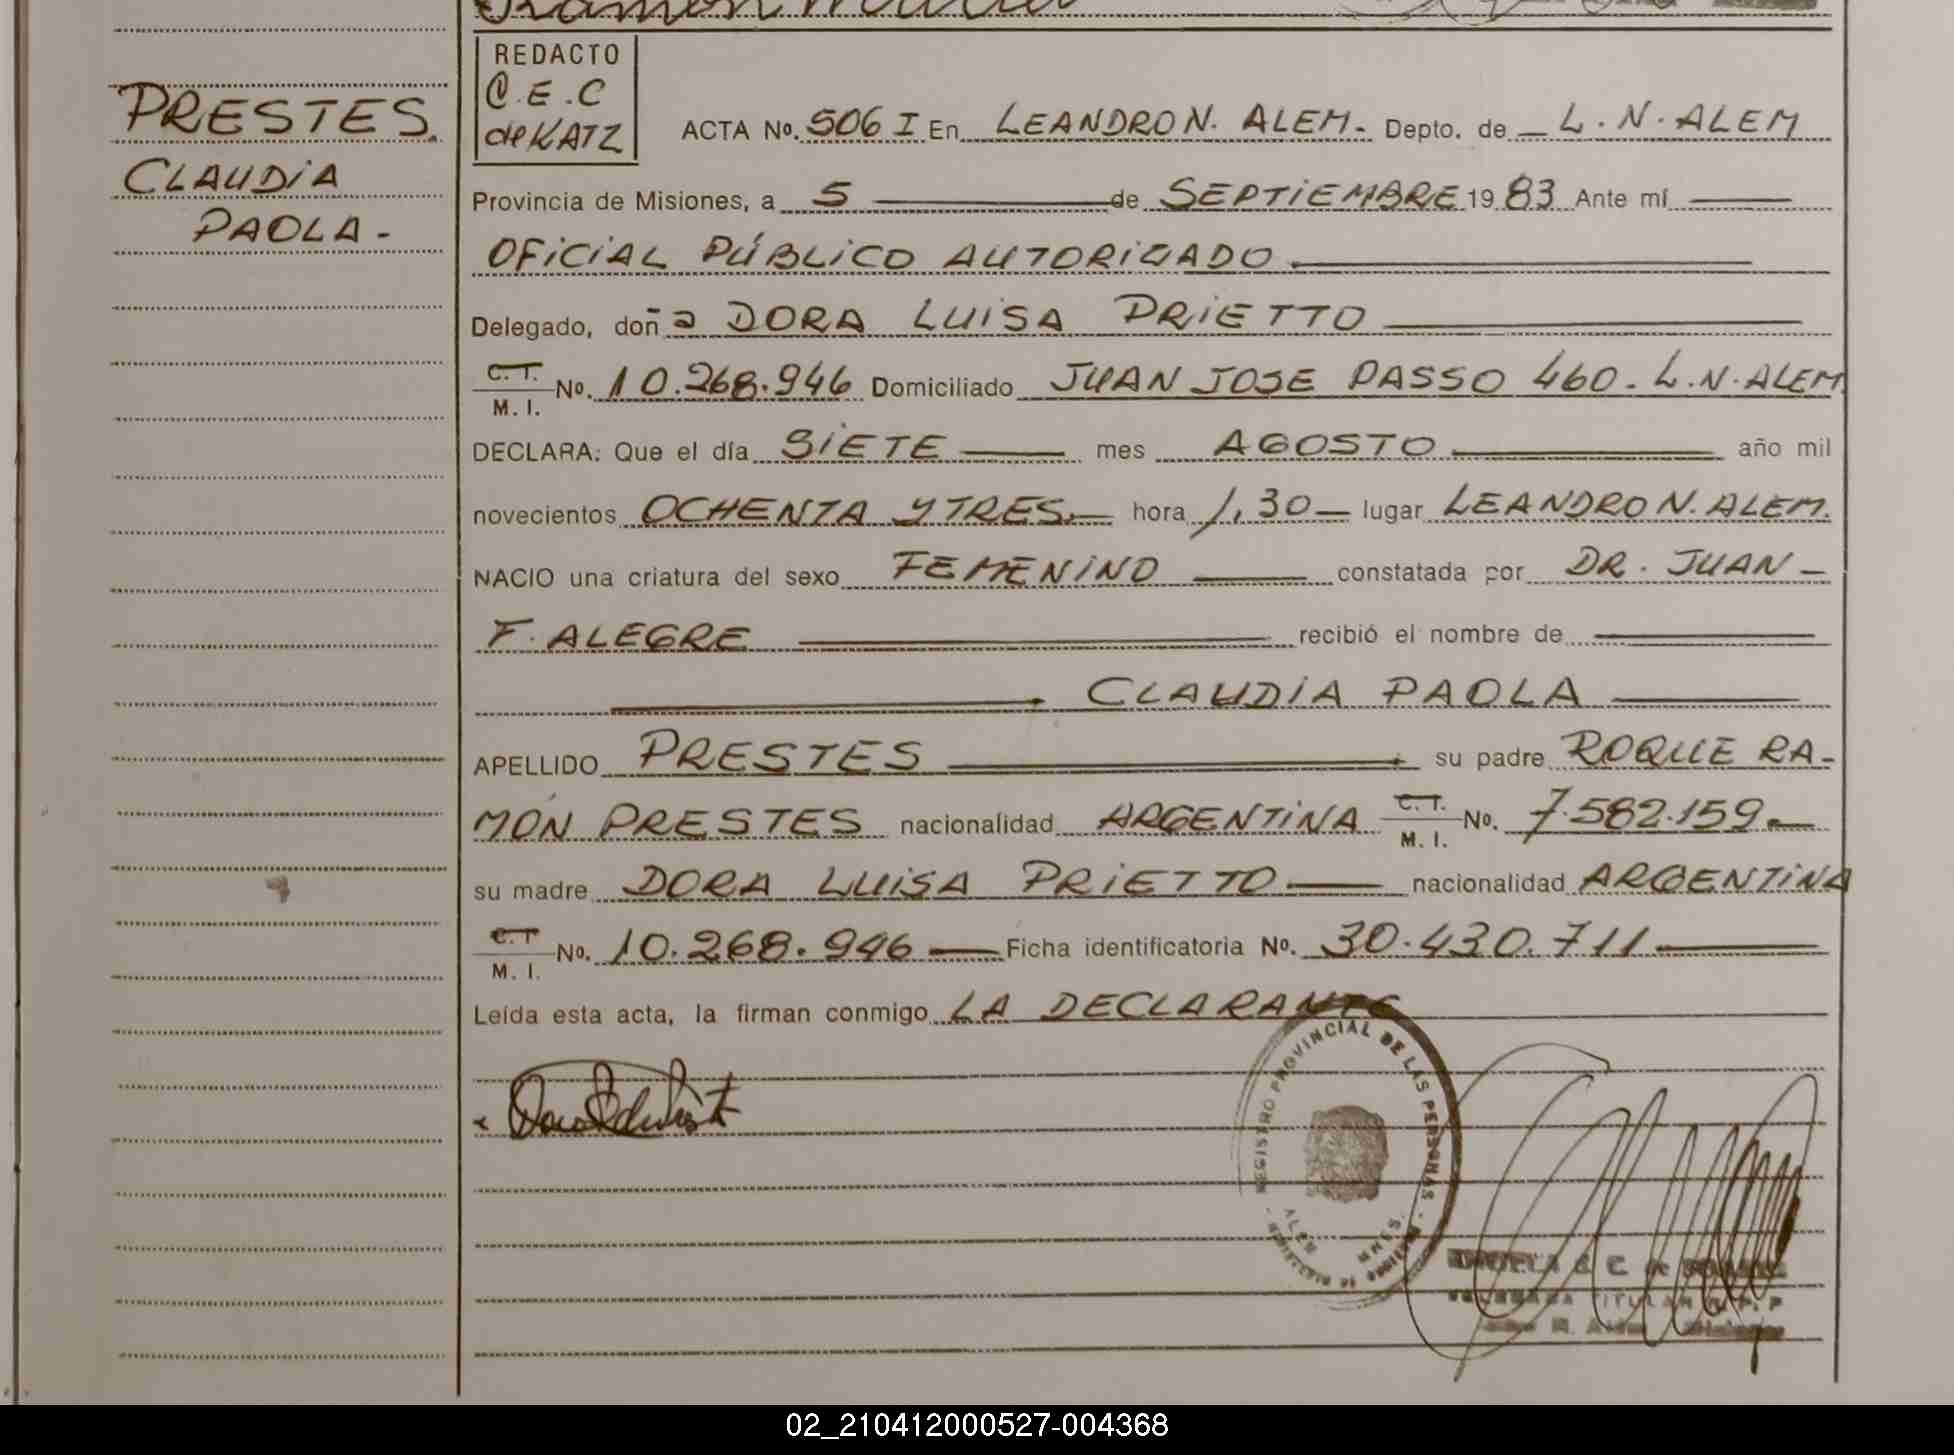 REDACTO
C.E.C
de KATZ
PRESTES.
CLAUDIA
PAOLA-
ACTA No. 506 I En LEANDRO N. ALEM. Depto. de L.N. ALEM
Provincia de Misiones, a 5 de SEPTIEMBRE 19 83 Ante mí
OFICIAL PÚBLICO AUTORIZADO
Delegado, doña DORA LUISA PRIETTO
C.I. M.I. No. 10.268.946 Domiciliado JUAN JOSE PASSO 460. L.N. ALEM
DECLARA: Que el día SIETE mes AGOSTO año mil
novecientos OCHENTA Y TRES. hora 1,30 lugar LEANDRO N. ALEM.
NACIO una criatura del sexo FEMENINO constatada por DR. JUAN
F. ALEGRE recibió el nombre de
CLAUDIA PAOLA
APELLIDO PRESTES su padre ROQUE RA-
MÓN PRESTES nacionalidad ARGENTINA C.I. M.I. No. 7.582.159.
su madre DORA LUISA PRIETTO nacionalidad ARGENTINA
C.I M.I. No. 10.268.946 Ficha identificatoria No. 30.430.711
Leída esta acta, la firman conmigo LA DECLARANTE
REGISTRO PROVINCIAL DE LAS PERSONAS
ALEM MNES.
TITULAR
02_210412000527-004368